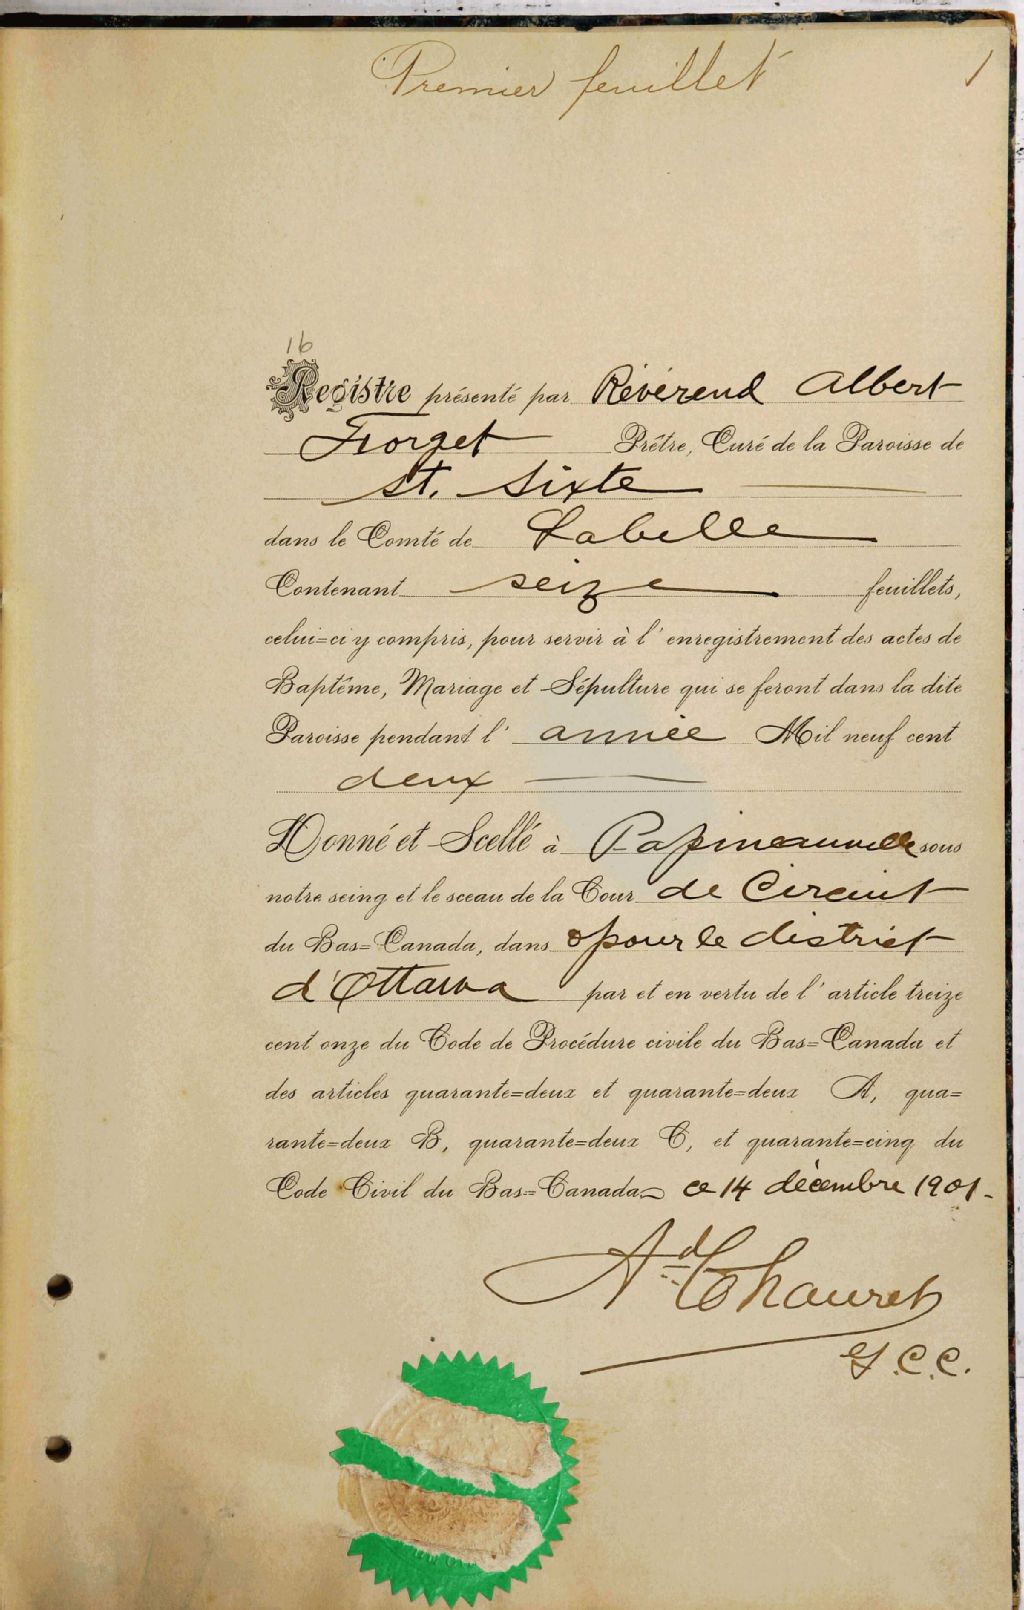 Premier feuillet
1
16
Registre présenté par Révérend Albert
Forget Prêtre, Curé de la Paroisse de
St. Sixte
dans le Comté de Labelle
Contenant seize feuillets,
celui=ci y compris, pour servir à l'enregistrement des actes de
Baptême, Mariage et Sépulture qui se feront dans la dite
Paroisse pendant l' année Mil neuf cent
deux
Donné et Scellé à Papineauville sous
notre seing et le sceau de la Cour de Circuit
du Bas=Canada, dans & pour le district
d'Ottawa par et en vertu de l'article treize
cent onze du Code de Procédure civile du Bas=Canada et
des articles quarante=deux et quarante=deux A, qua=
rante=deux B, quarante=deux C, et quarante=cinq du
Code Civil du Bas=Canada ce 14 décembre 1901.
Ad Chauret
G.C.C.